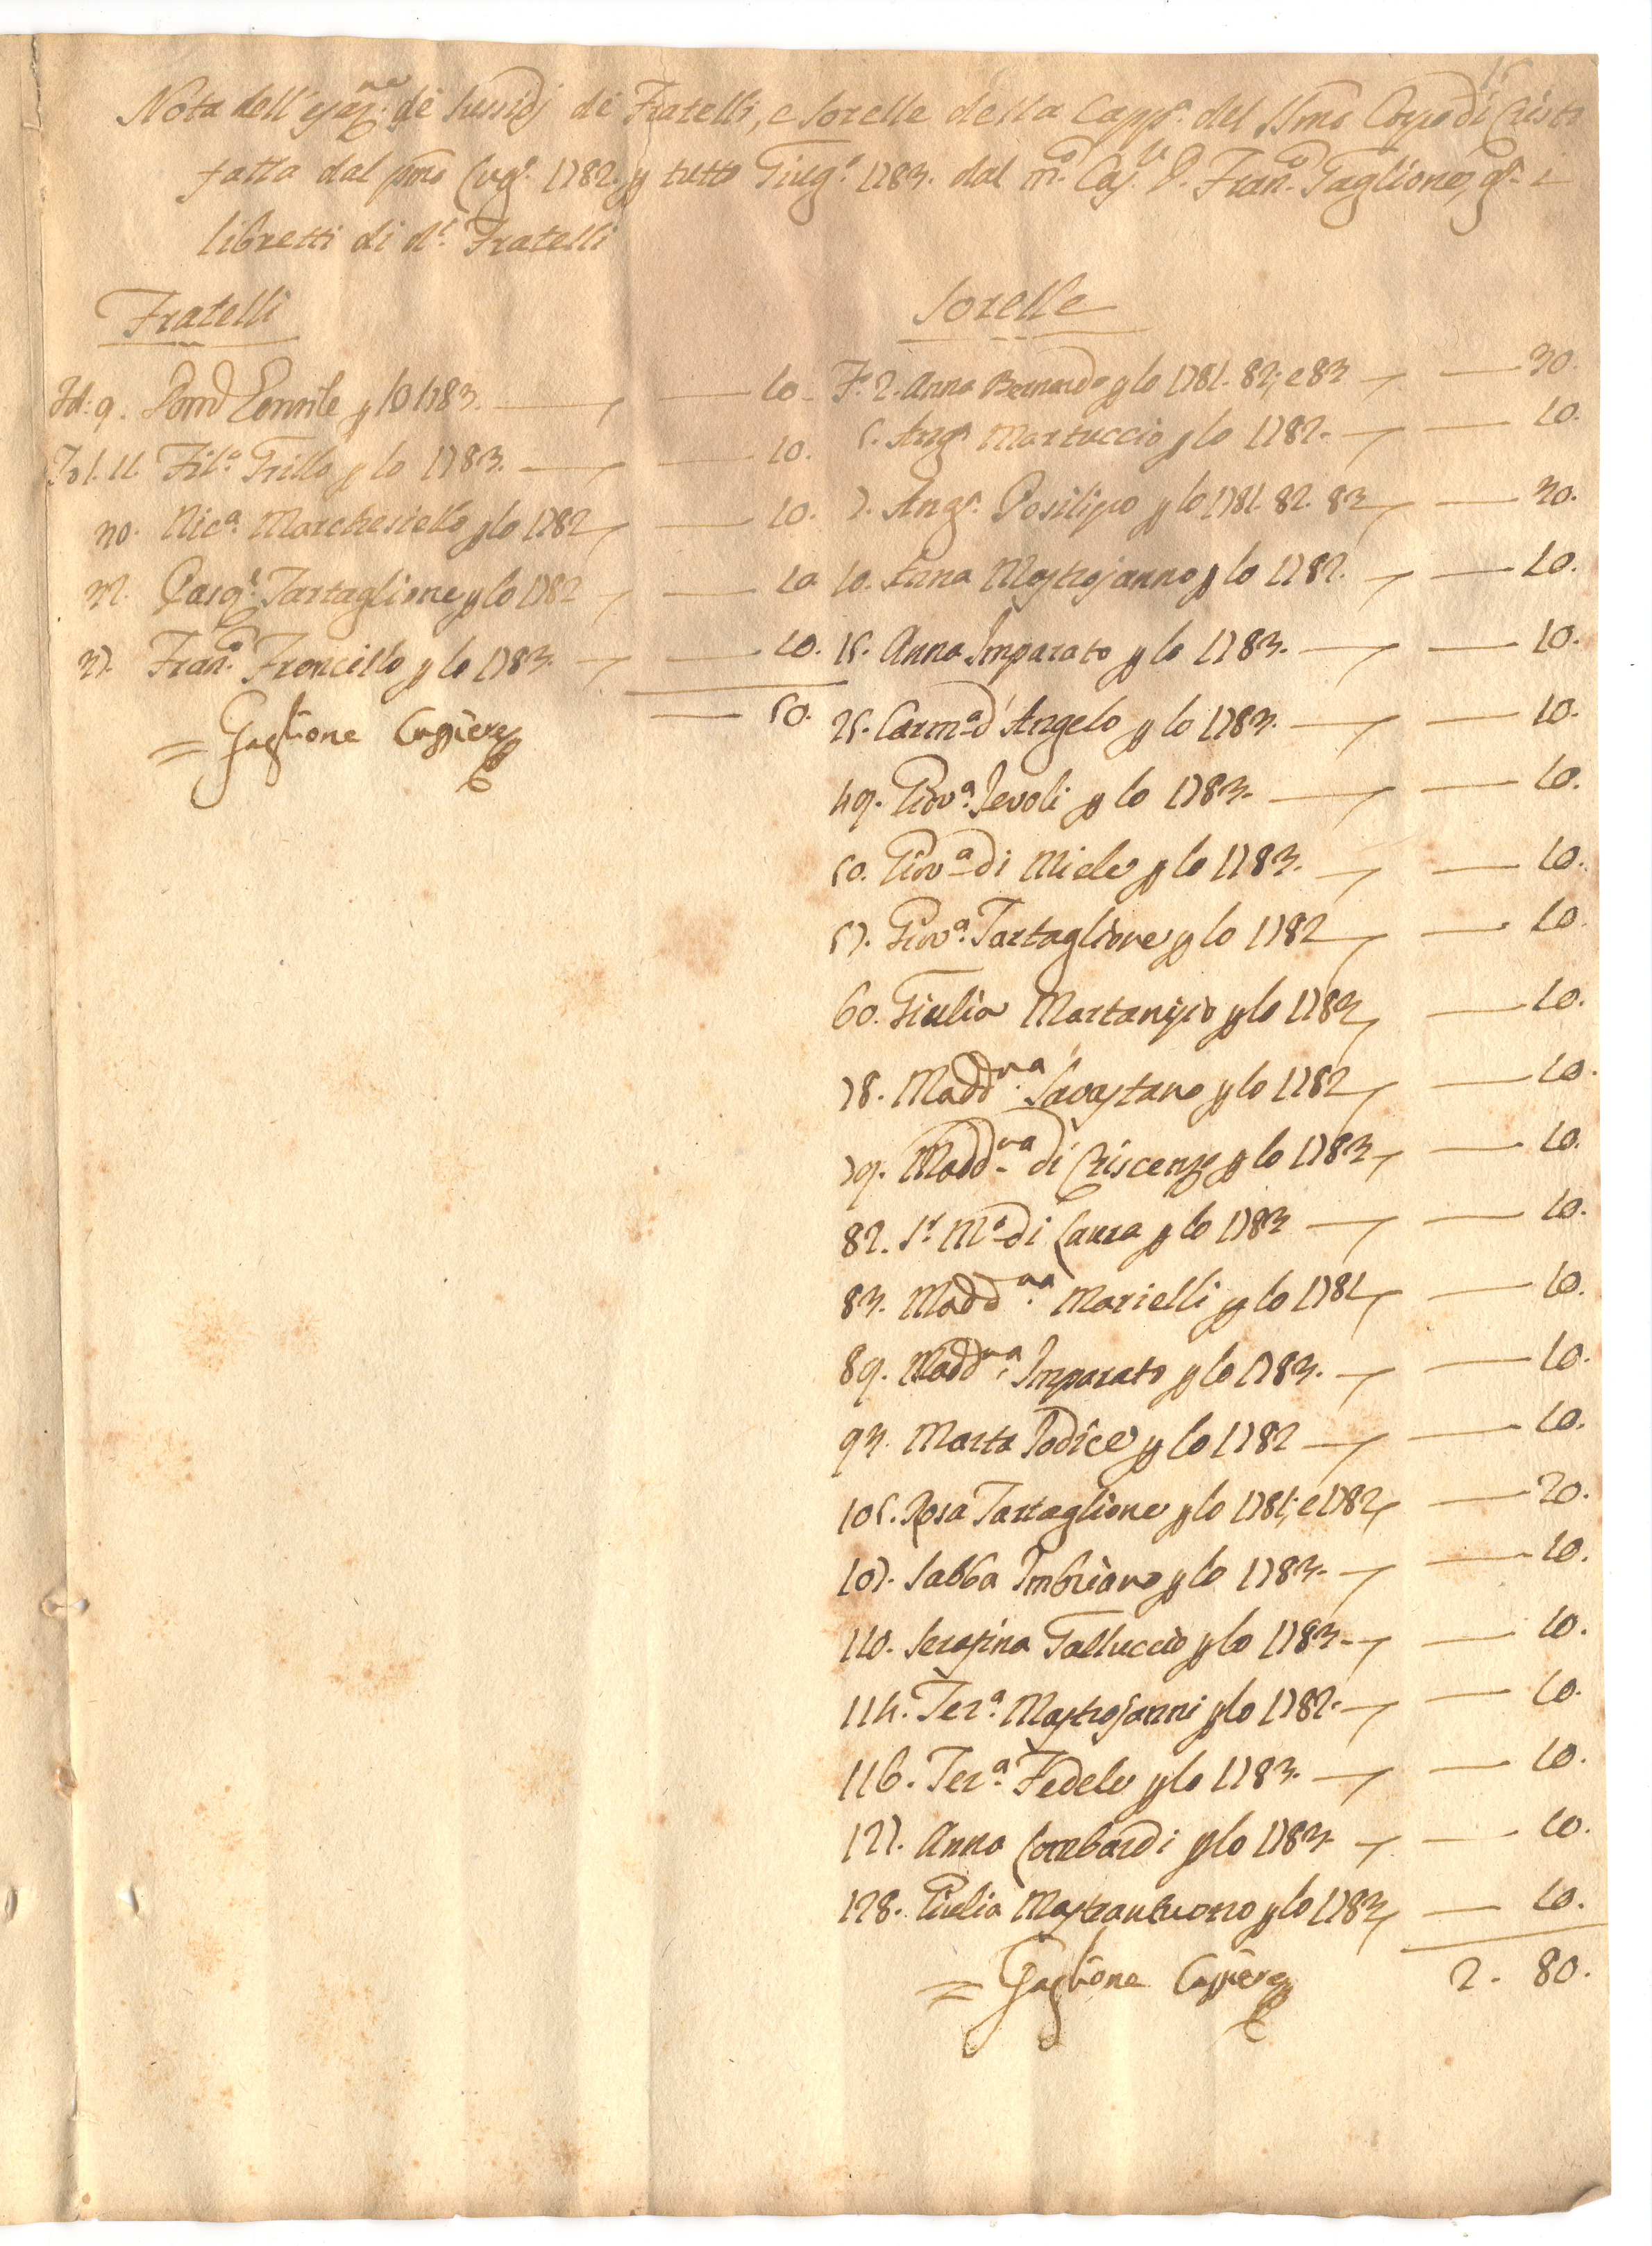 Nota dell'esaz.ne de sussidj de Fratelli, e sorelle della Capp.a del SSmo Corpo di Cristo
fatta dal pmo Lug.o 1782. p tutto Giug.o 1783. dal m.co D. Fran.co Gaglione, q.
libretti di d.i Fratelli
Fratelli
fol: 9. p lo 1783. 10
Fol. 11. Fil.o Grillo p lo 1783. 10.
30. Nic.a Marchesiello p lo 1782 10.
Pasq.e Tartaglione p lo 1782 10
37. Fran.co Froncillo p lo 1783. 10.
50.
= Gaglione Cassiere
Sorelle
F. 2. Anna Bernardo p lo 1781. 82; e 83 30.
5. Ang.a Martuccio p lo 1782. 10.
7. Ang.a Posilipo p lo 1781. 82. 83 30.
10. Anna Mastrojanno p lo 1782. 10.
15. Anna Imparato p lo 1783. 10.
25. Carm.a d'Angelo p lo 1783. 10.
49. Giov.a Jevoli p lo 1783. 10.
50. Giov.a di Miele p lo 1783. 10.
57. Giov.a Tartaglione p lo 1782 10.
60. Giulia Martanisio p lo 1783 10.
78. Madd.na Savastano p lo 1782 10.
79. Madd.na di Criscenzo p lo 1783 10.
82. S.r M.a di Laura p lo 1783 10.
83. Madd.na Marielli p lo 1781 10.
89. Madd.na Imparato p lo 1783. 10.
93. Marta Jodice p lo 1782 10.
105. Rosa Tartaglione p lo 1781; e 1782 20.
107. Sabba Imbriano p lo 1783. 10.
110. Serafina Galluccio p lo 1783. 10.
114. Ter.a Mastrojanni p lo 1782. 10.
116. Ter.a Fedele p lo 1783. 10.
127. Anna Lombardi p lo 1783 10.
128. Giulia Mastrantuono p lo 1783 10.
2. 80.
= Gaglione Cassiere